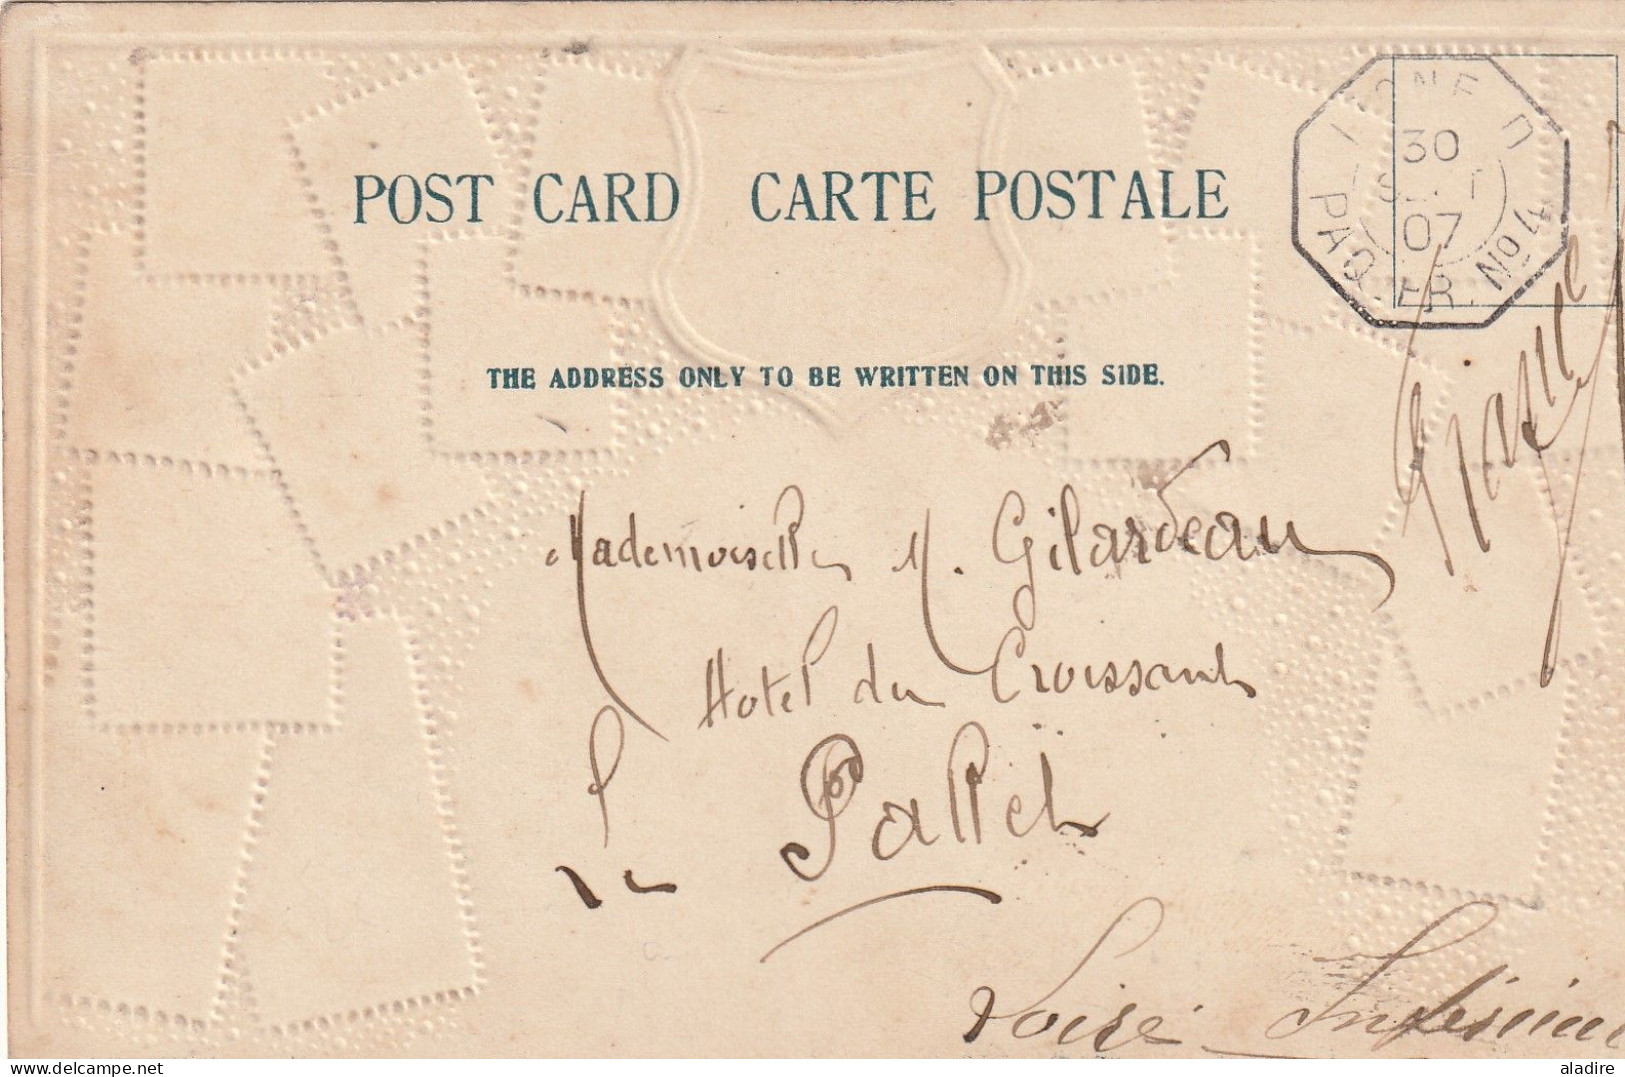 LIGNE D
30
SEPT
07
PAQ. FR. No 4
POST CARD CARTE POSTALE
THE ADDRESS ONLY TO BE WRITTEN ON THIS SIDE.
Mademoiselle M. Gilardeau
Hotel du Croissant
Le Pallet
Loire Inférieure
delcampe.net
aladire